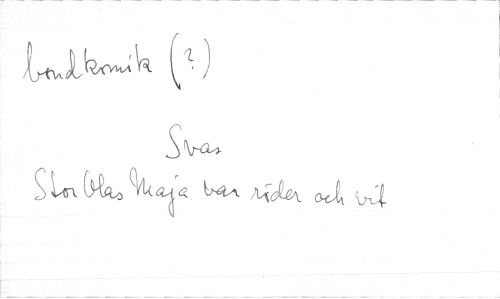 bondkomik (?)
Svar
StorOlas Maja var röder och vit